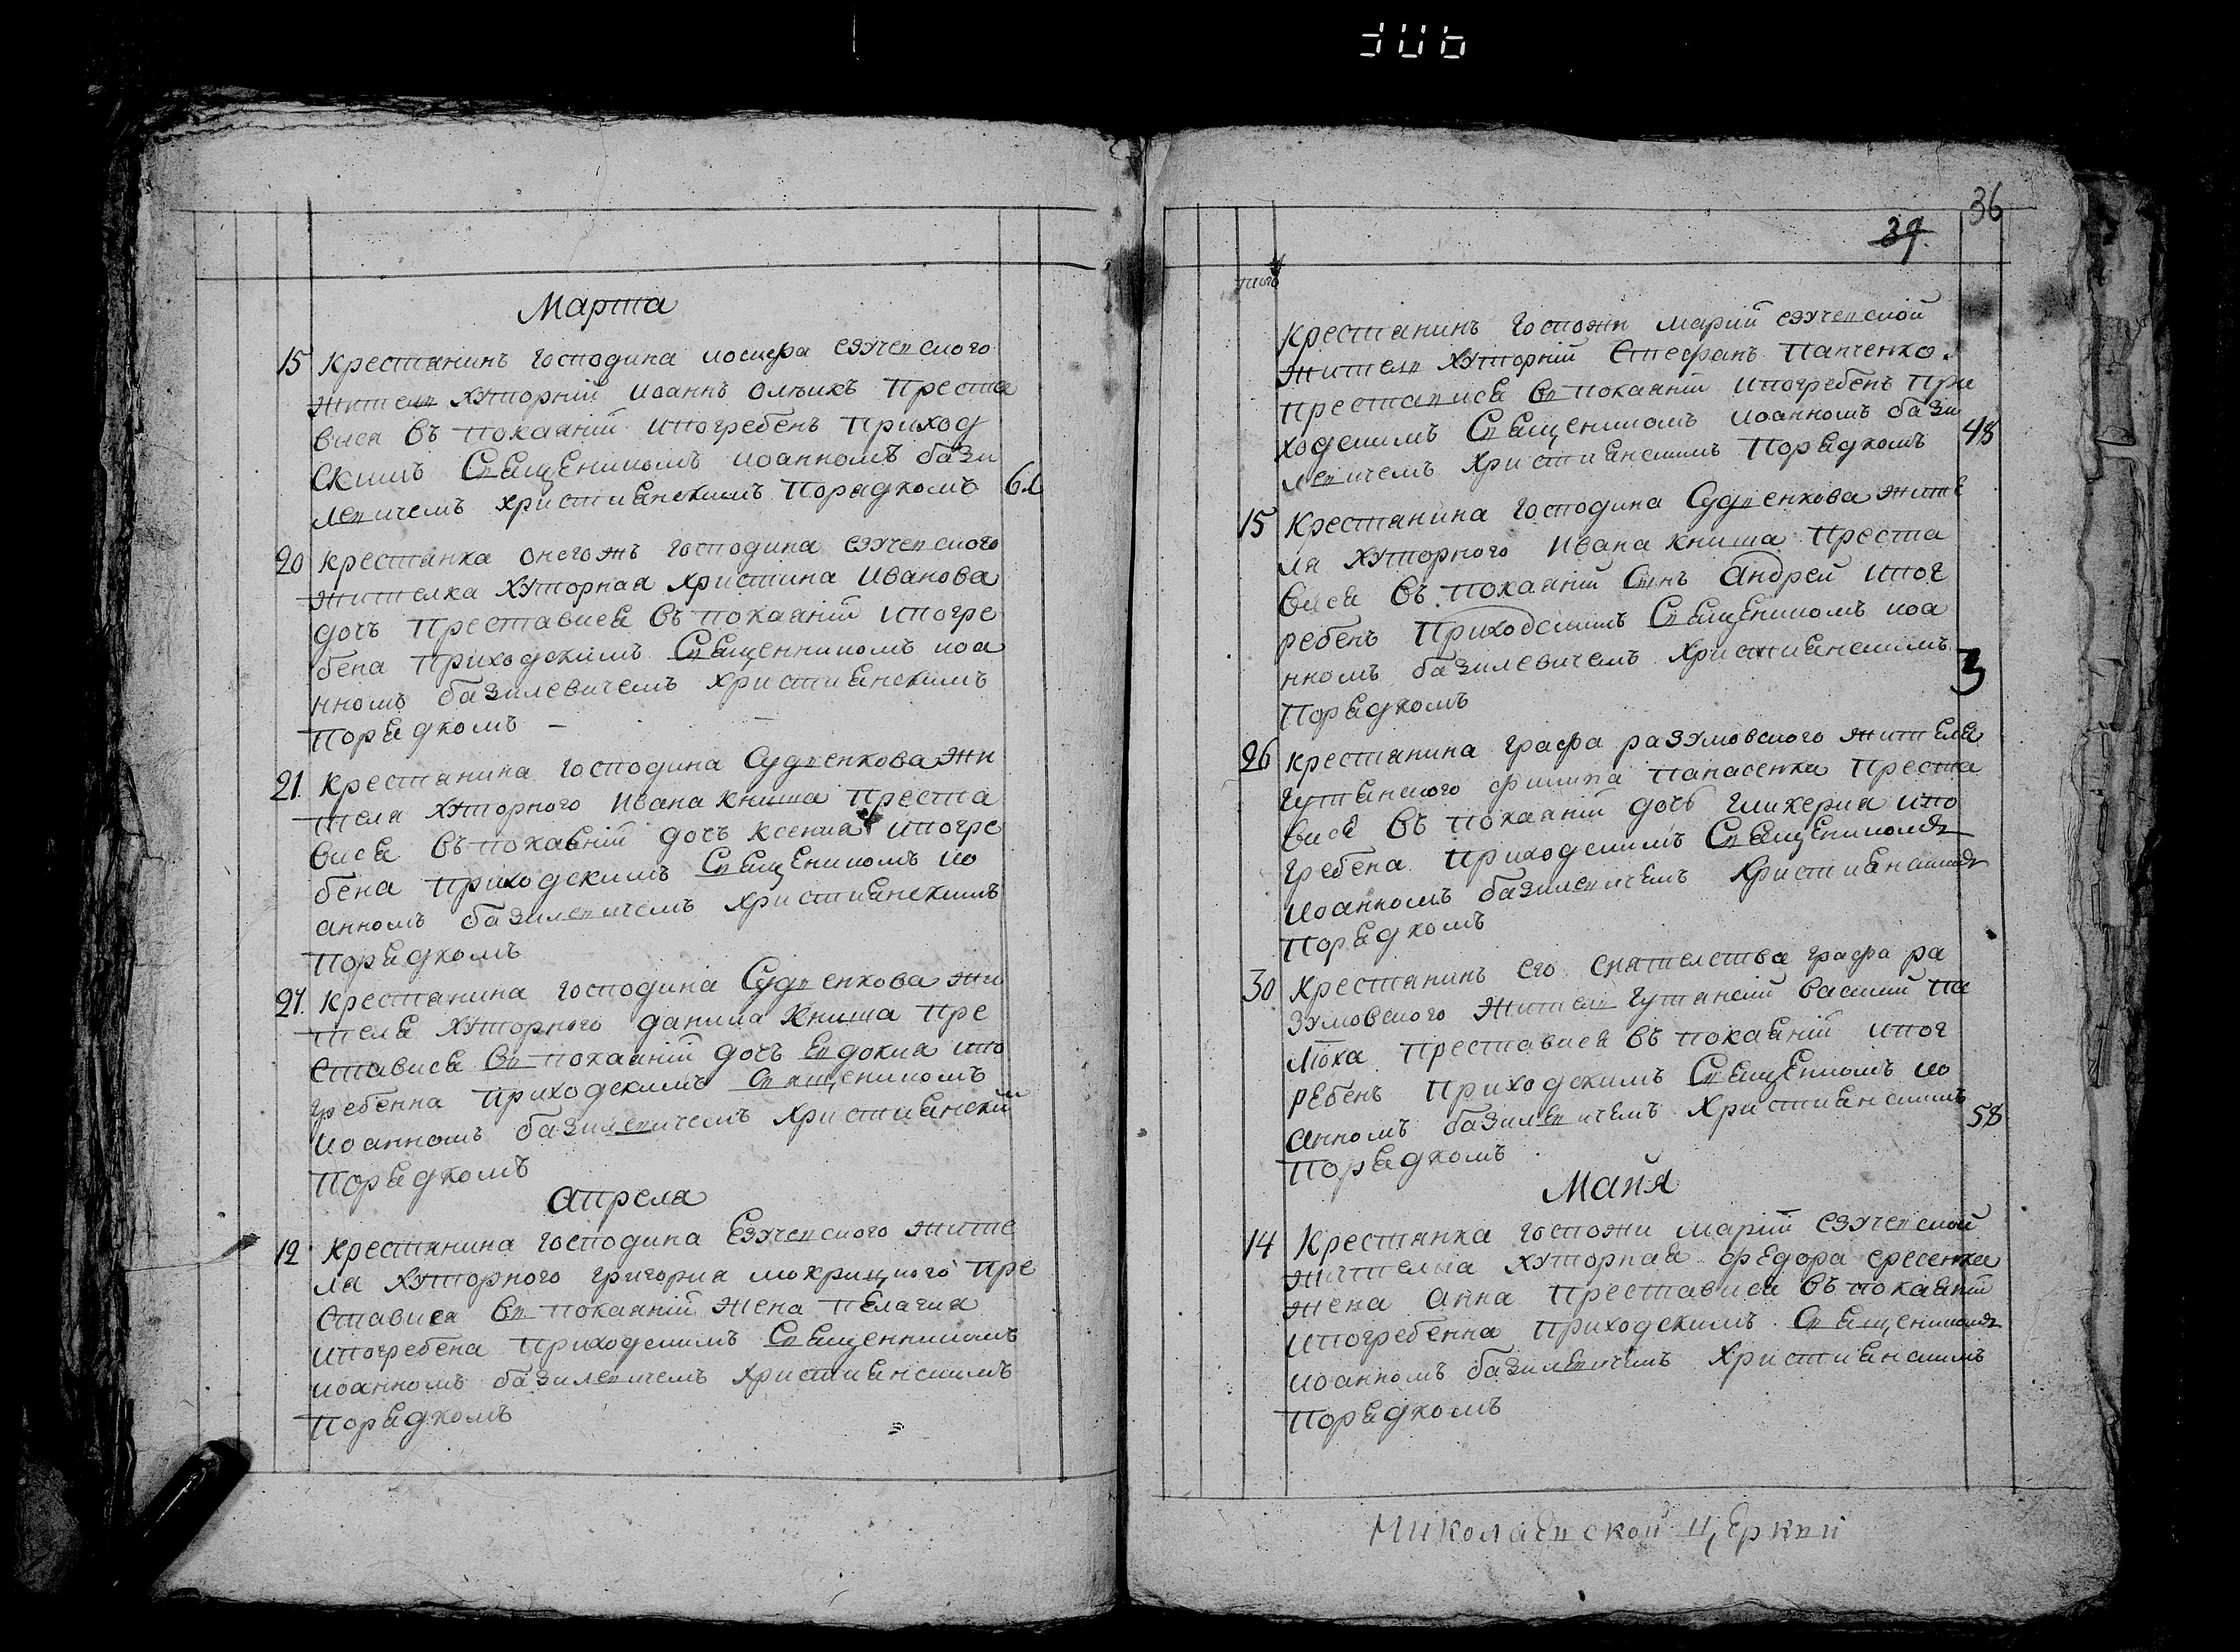 Марта
15 Крестянинъ господина иосифа езучевского
жителъ хуторній иоаннъ олъикъ преста
вися въ покаяній ипогребенъ приход
скимъ священникомъ иоанномъ бази
левичемъ християнскимъ порядкомъ
20 Крестянка онегожъ господина езучевского
жителка хуторная христина иванова
дочъ преставися въ покаяній ипогре
бена приходскимъ священникомъ иоа
нномъ базилевичемъ християнскимъ
порядкомъ
21. Крестянина господина Судвенкова жи
теля хуторного ивана книша преста
вися въ покаяній дочъ ксения ипогре
бена приходскимъ священикомъ ио
анномъ базилевичемъ християнскимъ
порядкомъ
Крестянина господина Судвенкова жи
теля хуторного данила книша пре
ставися въ покаяній дочъ евдокия ипо
гребенна приходскимъ священикомъ
иоанномъ базилевичемъ християнский
порядкомъ
Апреля
12 Крестянина господина Езучевского жите
ля хуторного григория мокрицкого пре
ставися въ покаяній жена пелагия
ипогребена приходскимъ священникомъ
иоанномъ базилевичемъ християнскимъ
порядкомъ
36
39.
Крестянинъ госпожи марій езучевской
жителъ хуторній Стефанъ Папченко.
преставися въ покаяній ипогребенъ при
ходскимъ священикомъ иоанномъ бази
левичемъ християнскимъ порядкомъ 48
15 Крестянина господина Судвенкова жите
ля хуторного ивана книша преста
вися въ покаяній Синъ Андрей ипог
ребенъ приходскимъ священикомъ иоа
нномъ базилевичемъ християнскимъ
порядкомъ 3
26 Крестянина графа разумовского жителя
гутянского филипа панасенка преста
вися въ покаяній дочъ гликерия ипо
гребена приходскимъ священикомъ
иоанномъ базилевичемъ християнскимъ
порядкомъ
30 Крестянинъ его сиятелства графа ра
зумовского жителъ гутянский василий
преставися въ покаяній ипог
ребенъ приходскимъ священикомъ ио
анномъ базилевичемъ християнскимъ
порядкомъ 58
Майя
14 Крестянка госпожи марій езучевской
жителка хуторная федора
жена анна преставися въ покаяній
ипогребенна приходскимъ священикомъ
иоанномъ базилевичемъ християнскимъ
порядкомъ
Николаевской церкви